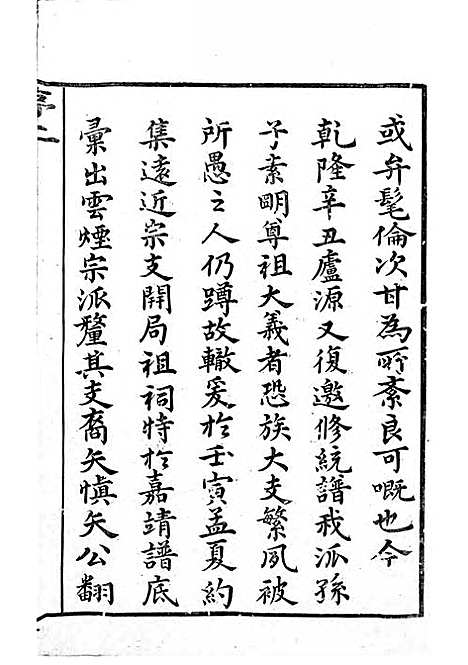 或弁髦倫次甘為所紊良可嘅也今
乾隆辛丑廬源又復邀修統譜我派孫
子素明尊祖大義者恐族大支繁夙被
所愚之人仍蹲故轍爰於壬寅孟夏約
集遠近宗支開局祖祠特於嘉靖譜底
彙出雲煙宗派釐其支裔矢慎矢公翻
序二